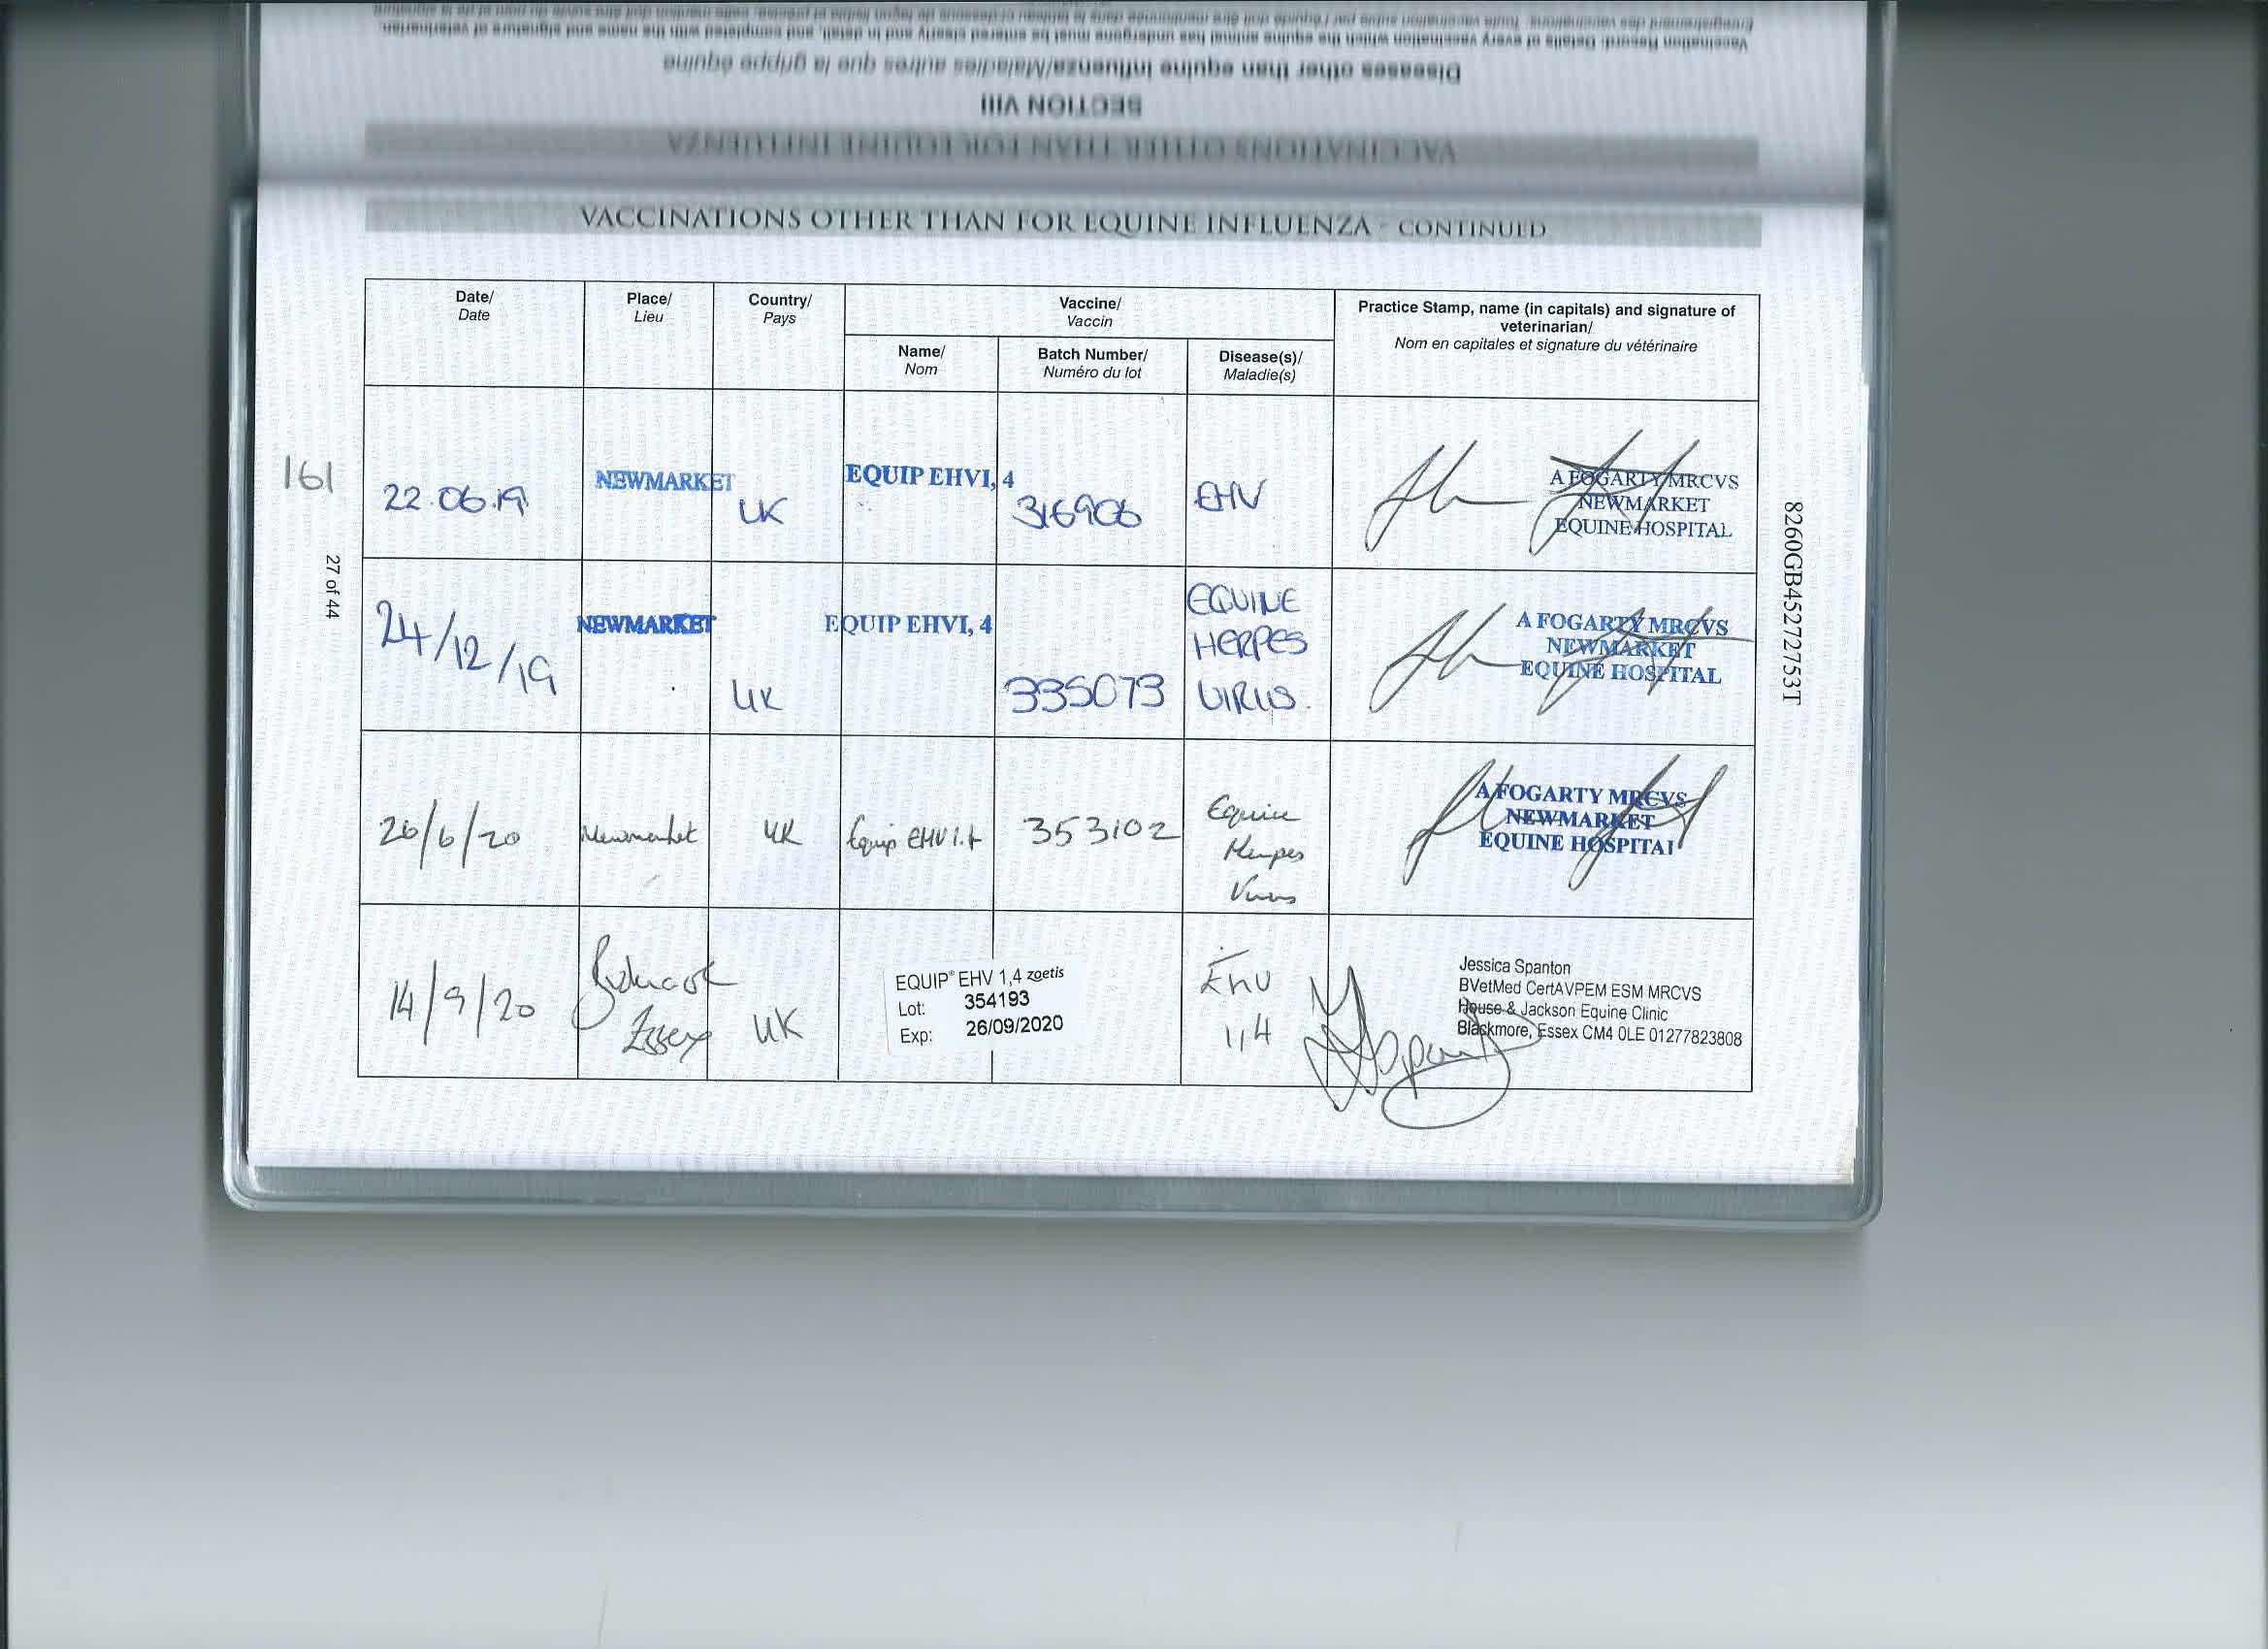 Enregistrement des vaccinations. Toute vaccination subie par l'équidé doit être mentionnée dans le tableau ci-dessous de façon lisible et précise, cette mention doit être suivie du nom et de la signature
Vaccination Record. Details of every vaccination which the equine animal has undergone must be entered clearly and in detail, and completed with the name and signature of veterinarian
Diseases other than equine influenza/Maladies autres que la grippe équine
SECTION VIII
VACCINATIONS OTHER THAN FOR EQUINE INFLUENZA
VACCINATIONS OTHER THAN FOR EQUINE INFLUENZA - CONTINUED
Date/
Date
Place/
Lieu
Country/
Pays
Vaccine/
Vaccin
Name/
Nom
Batch Number/
Numéro du lot
Disease(s)/
Maladie(s)
Practice Stamp, name (in capitals) and signature of
veterinarian/
Nom en capitales et signature du vétérinaire
161
22.06.19
NEWMARKET
UK
EQUIP EHVI, 4
316906
EHV
A FOGARTY MRCVS
NEWMARKET
EQUINE HOSPITAL
27 of 44
8260GB452727753T
24/12/19
NEWMARKET
UK
EQUIP EHVI, 4
335073
EQUINE
HERPES
VIRUS.
A FOGARTY MRCVS
NEWMARKET
EQUINE HOSPITAL
26/6/20
Newmarket
UK
Equip EHV 1.4
353102
Equine
Herpes
Virus
A FOGARTY MRCVS
NEWMARKET
EQUINE HOSPITAL
14/9/20
Essex
UK
EQUIP® EHV 1,4 zoetis
Lot: 354193
Exp: 26/09/2020
EHV
1,4
Jessica Spanton
BVetMed CertAVPEM ESM MRCVS
House & Jackson Equine Clinic
Blackmore, Essex CM4 0LE 01277823808